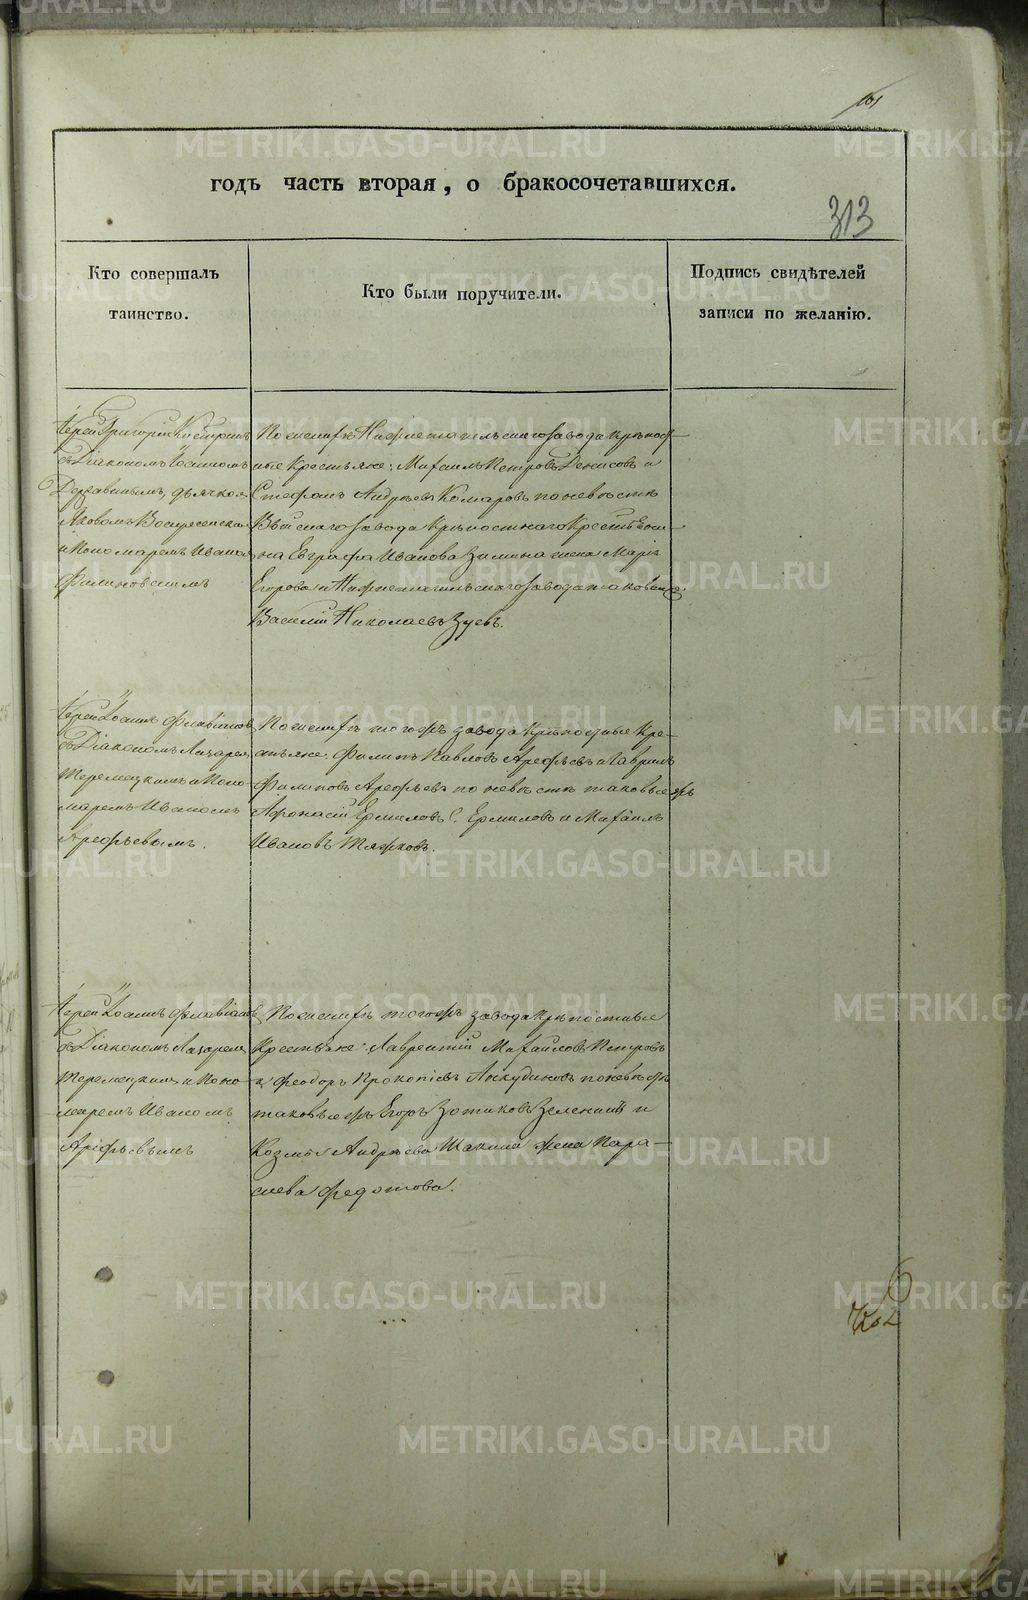 101
годъ часть вторая, о бракосочетавшихся.
313
Кто совершалъ
таинство.
Кто были поручители.
Подпись свидѣтелей
записи по желанію.
Іерей Григорій
съ Діакономъ Іоанномъ
Державинымъ, дьячком
Яковомъ Воскресенским
и Пономаремъ Иваном
По женихѣ Нижнетагильскаго завода крѣпост-
ные Крестьяне: Михаилъ Петровъ Денисовъ и
Стефанъ Андреевъ Комаровъ по невѣстѣ
Выйскаго завода Крѣпостнаго Крестьяни-
на Евграфа Иванова Зимина жена Марія
Егорова и Нижнетагильскаго завода таковый же
Василій Николаевъ Зуевъ.
Іерей Іоаннъ Флавіановъ
съ Діакономъ Лазарем
Теремецкимъ и Поно-
маремъ Иваномъ
Арефьевымъ.
По женихѣ тогожъ завода Крѣпостные Кре-
стьяне: Филипъ Павловъ Арефьевъ и Гаврилъ
Филиповъ Арефьевъ по невѣстѣ таковыежъ
Афонасій Ермиловъ Ермиловъ и Михаилъ
Ивановъ Тяжковъ.
Іерей Іоаннъ Флавіановъ
съ Діакономъ Лазарем
Теремецкимъ и Поно-
маремъ Иваномъ
Арефьевымъ
По женихѣ тогожъ завода Крѣпостные
Крестьяне: Лаврентій Михайловъ Петровъ
и Феодоръ Прокопіевъ Анкудиновъ по невѣстѣ
таковыежъ Егоръ Зотиковъ Зеленинъ и
Козмы Андреева Шакина жена Пара-
скева Федотова.
METRIKI.GASO-URAL.RU